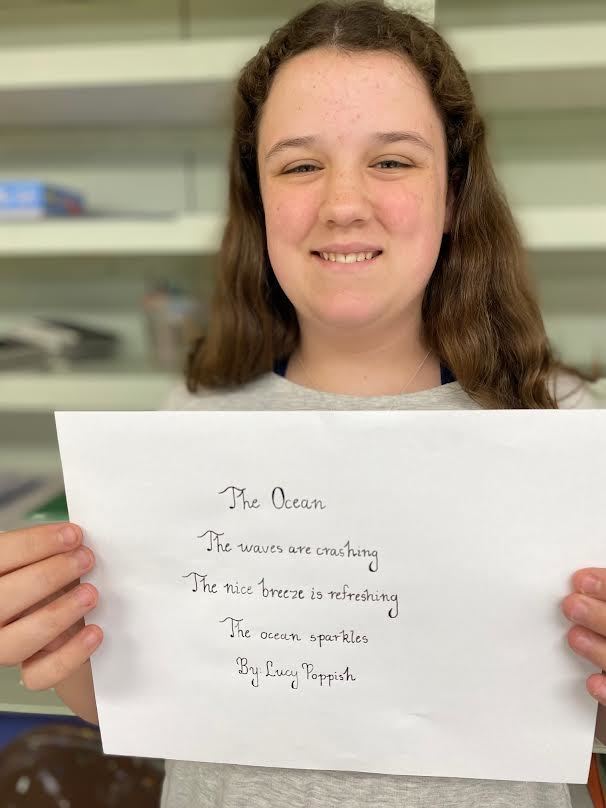 The Ocean
The waves are crashing
The nice breeze is refreshing
The ocean sparkles
By: Lucy Poppish